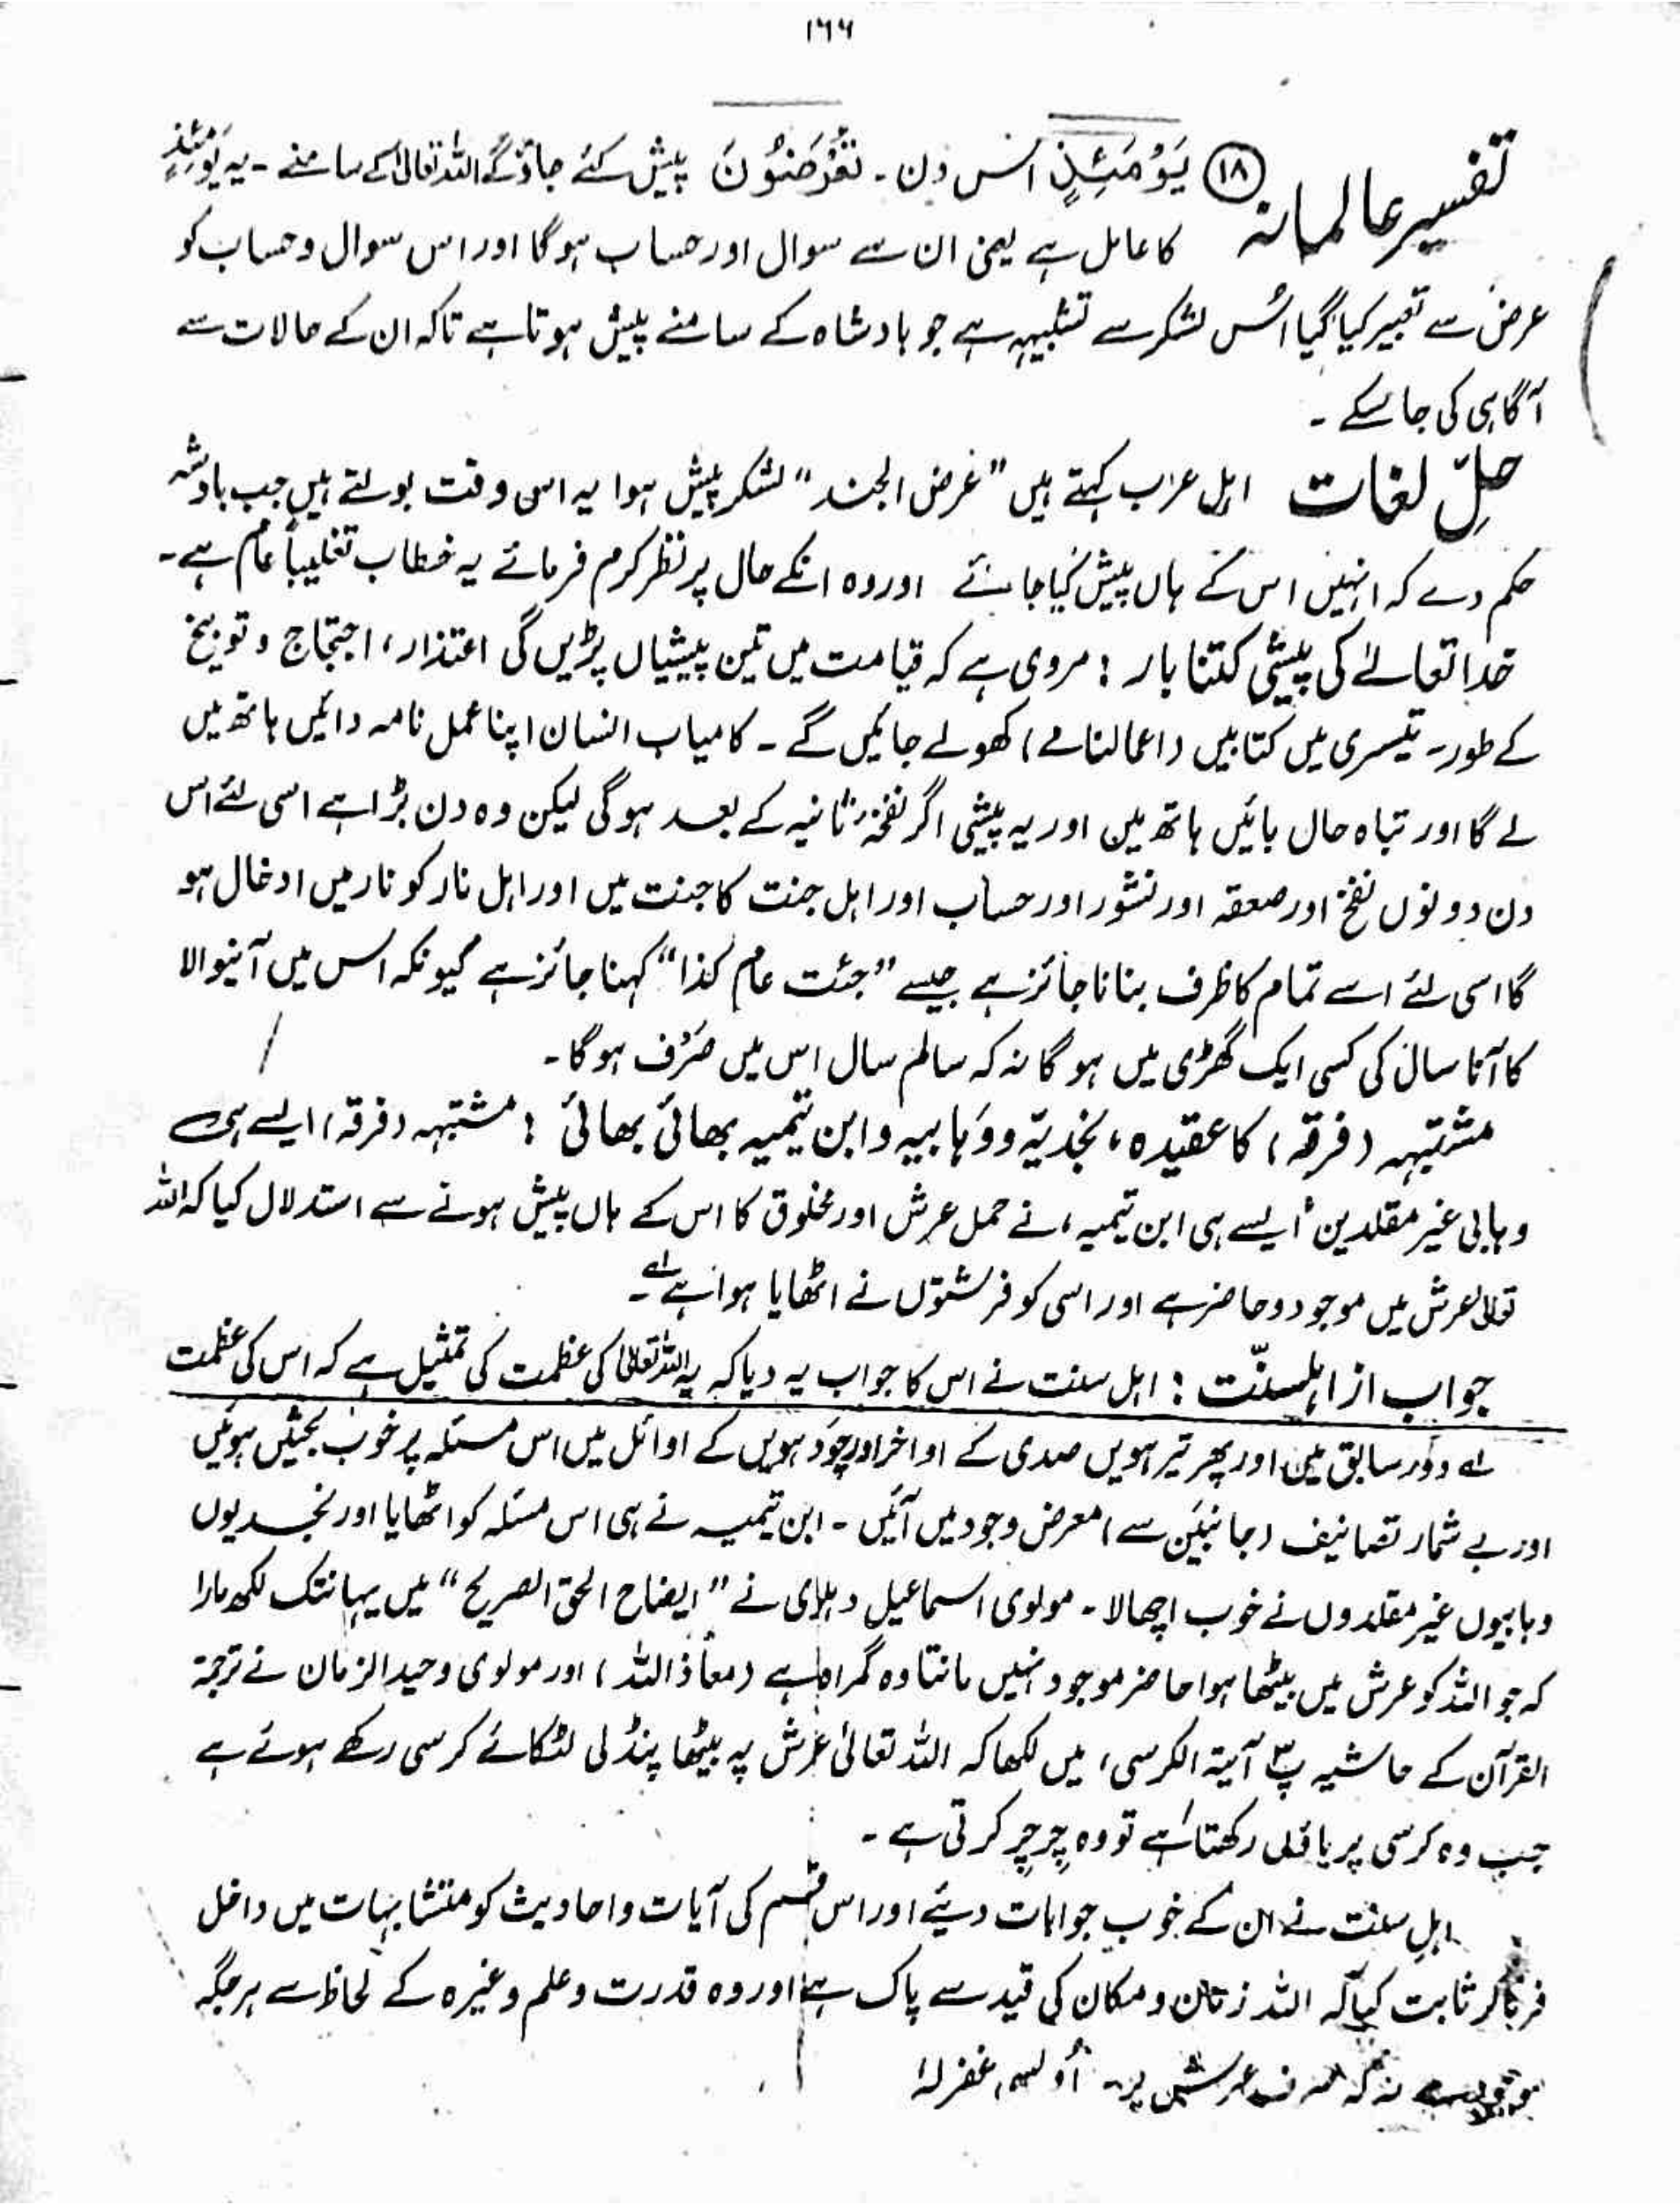 ۱۶۶
تفسیر عالمانہ ⑱ یَوْمَئِذٍ اس دن۔ تُعْرَضُوْنَ پیش کئے جاؤ گے اللہ تعالیٰ کے سامنے۔ یہ یَوْمَئِذٍ
کا عامل ہے یعنی ان سے سوال اور حساب ہو گا اور اس سوال و حساب کو
عرض سے تعبیر کیا گیا اُس لشکر سے تشبیہہ ہے جو بادشاہ کے سامنے پیش ہوتا ہے تاکہ ان کے حالات سے
آگاہی کی جا سکے۔
حلِّ لغات اہل عرب کہتے ہیں "عرض الجند" لشکر پیش ہوا یہ اسی وقت بولتے ہیں جب بادشہ
حکم دے کہ انہیں اس کے ہاں پیش کیا جائے اور وہ انکے حال پر نظر کرم فرمائے یہ خطاب تغلیباً عام ہے۔
خدا تعالےٰ کی پیشی کتنا بار : مروی ہے کہ قیامت میں تین پیشیاں پڑیں گی اعتذار، احتجاج و توبیخ
کے طور۔ تیسری میں کتابیں (اعمالنامے) کھولے جائیں گے۔ کامیاب انسان اپنا عمل نامہ دائیں ہاتھ میں
لے گا اور تباہ حال بائیں ہاتھ میں اور یہ پیشی اگر نفخۂ ثانیہ کے بعد ہو گی لیکن وہ دن بڑا ہے اسی لئے اس
دن دونوں نفخۂ اور صعقہ اور نشور اور حساب اور اہل جنت کا جنت میں اور اہل نار کو نار میں ادخال ہو
گا اسی لئے اسے تمام کا ظرف بنانا جائز ہے جیسے "جئت عام کذا" کہنا جائز ہے کیونکہ اس میں آنیوالا
کا آنا سال کی کسی ایک گھڑی میں ہو گا نہ کہ سالم سال اس میں صَرف ہو گا۔
مشتبہہ (فرقہ) کا عقیدہ، نجدیّہ و وہابیہ و ابن تیمیہ بھائی بھائی : مشتبہہ (فرقہ) ایسے ہی
وہابی غیر مقلدین ایسے ہی ابن تیمیہ، نے حمل عرش اور مخلوق کا اس کے ہاں پیش ہونے سے استدلال کیا کہ اللہ
تعالیٰ عرش میں موجود و حاضر ہے اور اسی کو فرشتوں نے اٹھایا ہوا ہے لہ۔
جواب از اہلسنّت : اہل سنت نے اس کا جواب یہ دیا کہ یہ اللہ تعالیٰ کی عظمت کی تمثیل ہے کہ اس کی عظمت
لہ دَور سابق میں اور پھر تیرہویں صدی کے اواخر اور چودہویں کے اوائل میں اس مسئلہ پر خوب بحثیں ہوئیں
اور بے شمار تصانیف (جانبَین سے) معرض وجود میں آئیں۔ ابن تیمیہ نے ہی اس مسئلہ کو اٹھایا اور نجدیوں
وہابیوں غیر مقلدوں نے خوب اچھالا۔ مولوی اسماعیل دہلوی نے "ایضاح الحق الصریح" میں یہانتک لکھ مارا
کہ جو اللہ کو عرش میں بیٹھا ہوا حاضر موجود نہیں مانتا وہ گمراہ ہے (معاذ اللہ) اور مولوی وحید الزمان نے ترجمۃ
القرآن کے حاشیہ پ۳ آیۃ الکرسی، میں لکھا کہ اللہ تعالیٰ عرش پہ بیٹھا پنڈلی لٹکائے کرسی رکھے ہوئے ہے
جب وہ کرسی پر پاؤں رکھتا ہے تو وہ چِرچِر کرتی ہے۔
اہلِ سنت نے ان کے خوب جوابات دیئے اور اس قسم کی آیات و احادیث کو متشابہات میں داخل
فرما کر ثابت کیا کہ اللہ زمان و مکان کی قید سے پاک ہے اور وہ قدرت و علم وغیرہ کے لحاظ سے ہر جگہ
موجود ہے نہ کہ صرف عرش پر۔ اُویسی غفرلہٗ